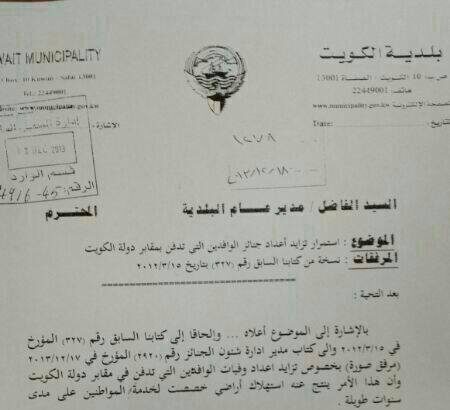 بلدية الكويت
KUWAIT MUNICIPALITY
ص.ب: 10 الكويت - الصفاة 13001
P.O.Box: 10 Kuwait - Safat 13001
هاتف: 22449001
Tel.: 22449001
www.municipality.gov.kw الصفحة الإلكترونية
Website: www.municipality.gov.kw
التاريخ: Date:
الإشارة:
DEC 2013
قسم الوارد
الرقم:
السيد الفاضل / مدير عام البلدية المحترم
الموضوع : استمرار تزايد أعداد جنائز الوافدين التي تدفن بمقابر دولة الكويت
المرفقات : نسخة من كتابنا السابق رقم (٣٢٧) بتاريخ ٢٠١٢/٣/١٥
بعد التحية :
بالإشارة إلى الموضوع أعلاه ... وإلحاقا إلى كتابنا السابق رقم (٣٢٧) المؤرخ
في ٢٠١٢/٣/١٥ والى كتاب مدير ادارة شئون الجنائز رقم (٢٩٢٠) المؤرخ في ٢٠١٣/١٢/١٧
(مرفق صورة) بخصوص تزايد اعداد وفيات الوافدين التي تدفن في مقابر دولة الكويت
وأن هذا الأمر ينتج عنه استهلاك أراضي خصصت لخدمة المواطنين على مدى
سنوات طويلة .